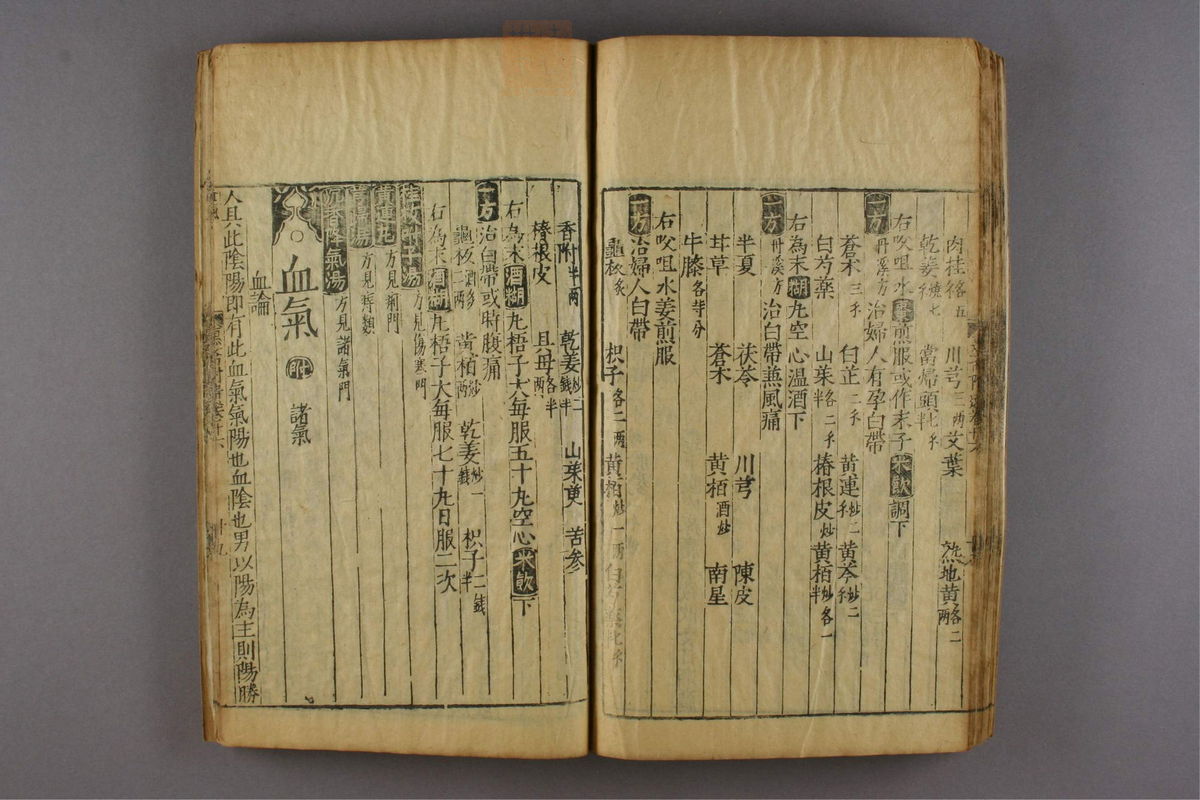 肉桂各五 川芎三兩 艾葉 熟地黃各二兩
乾姜 當歸頭
右㕮咀水煎服或作末子米飲調下
一方丹溪方治婦人有孕白帶
蒼朮三 白芷二 黃連炒二 黃芩炒二
白芍藥 山茱 二 椿根皮炒 黃栢炒各一半
右為末糊丸空心温酒下
一方丹溪方治白帶兼風痛
半夏 茯苓 川芎 陳皮
甘草 蒼朮 黃栢酒炒 南星
牛膝各等分
右㕮咀水姜煎服
一方治婦人白帶
龜板炙 枳子各二兩 黃栢炒一兩 白芍藥
香附半兩 乾姜炒二錢半 山茱萸 苦參
椿根皮 且母各半兩
右為末酒糊丸梧子大每服五十丸空心米飲下
一方治白帶或時腹痛
龜板酒炒二兩 黃栢炒一兩 乾姜炒一錢 枳子二錢半
右為末酒糊丸梧子大每服七十丸日服二次
桂枝附子湯方見傷寒門
黃連丸方見痢門
方見痔類
沉香降氣湯方見諸氣門
血氣 附 諸氣
血論
人具此陰陽即有此血氣氣陽也血陰也男以陽為主則陽勝